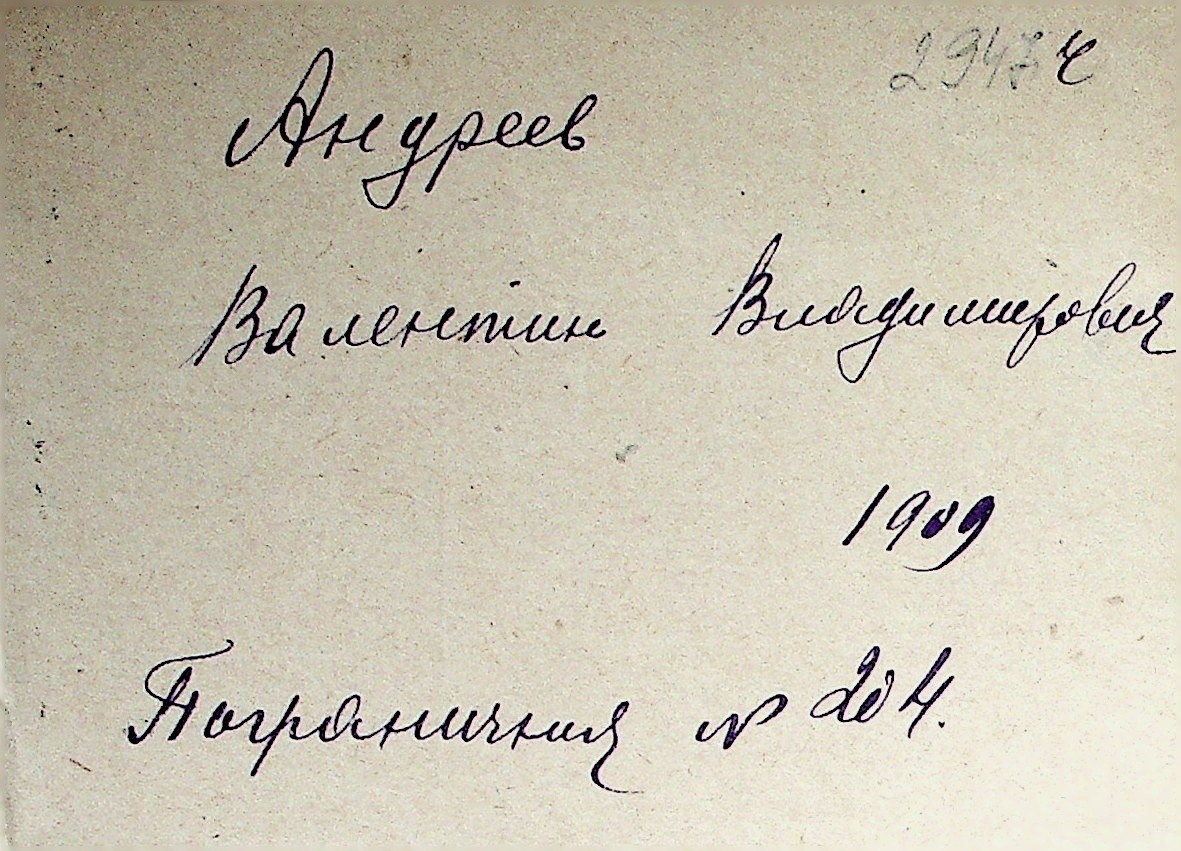 29474
Андреев
Валентин Владимирович
1909
Пограничная № 204.